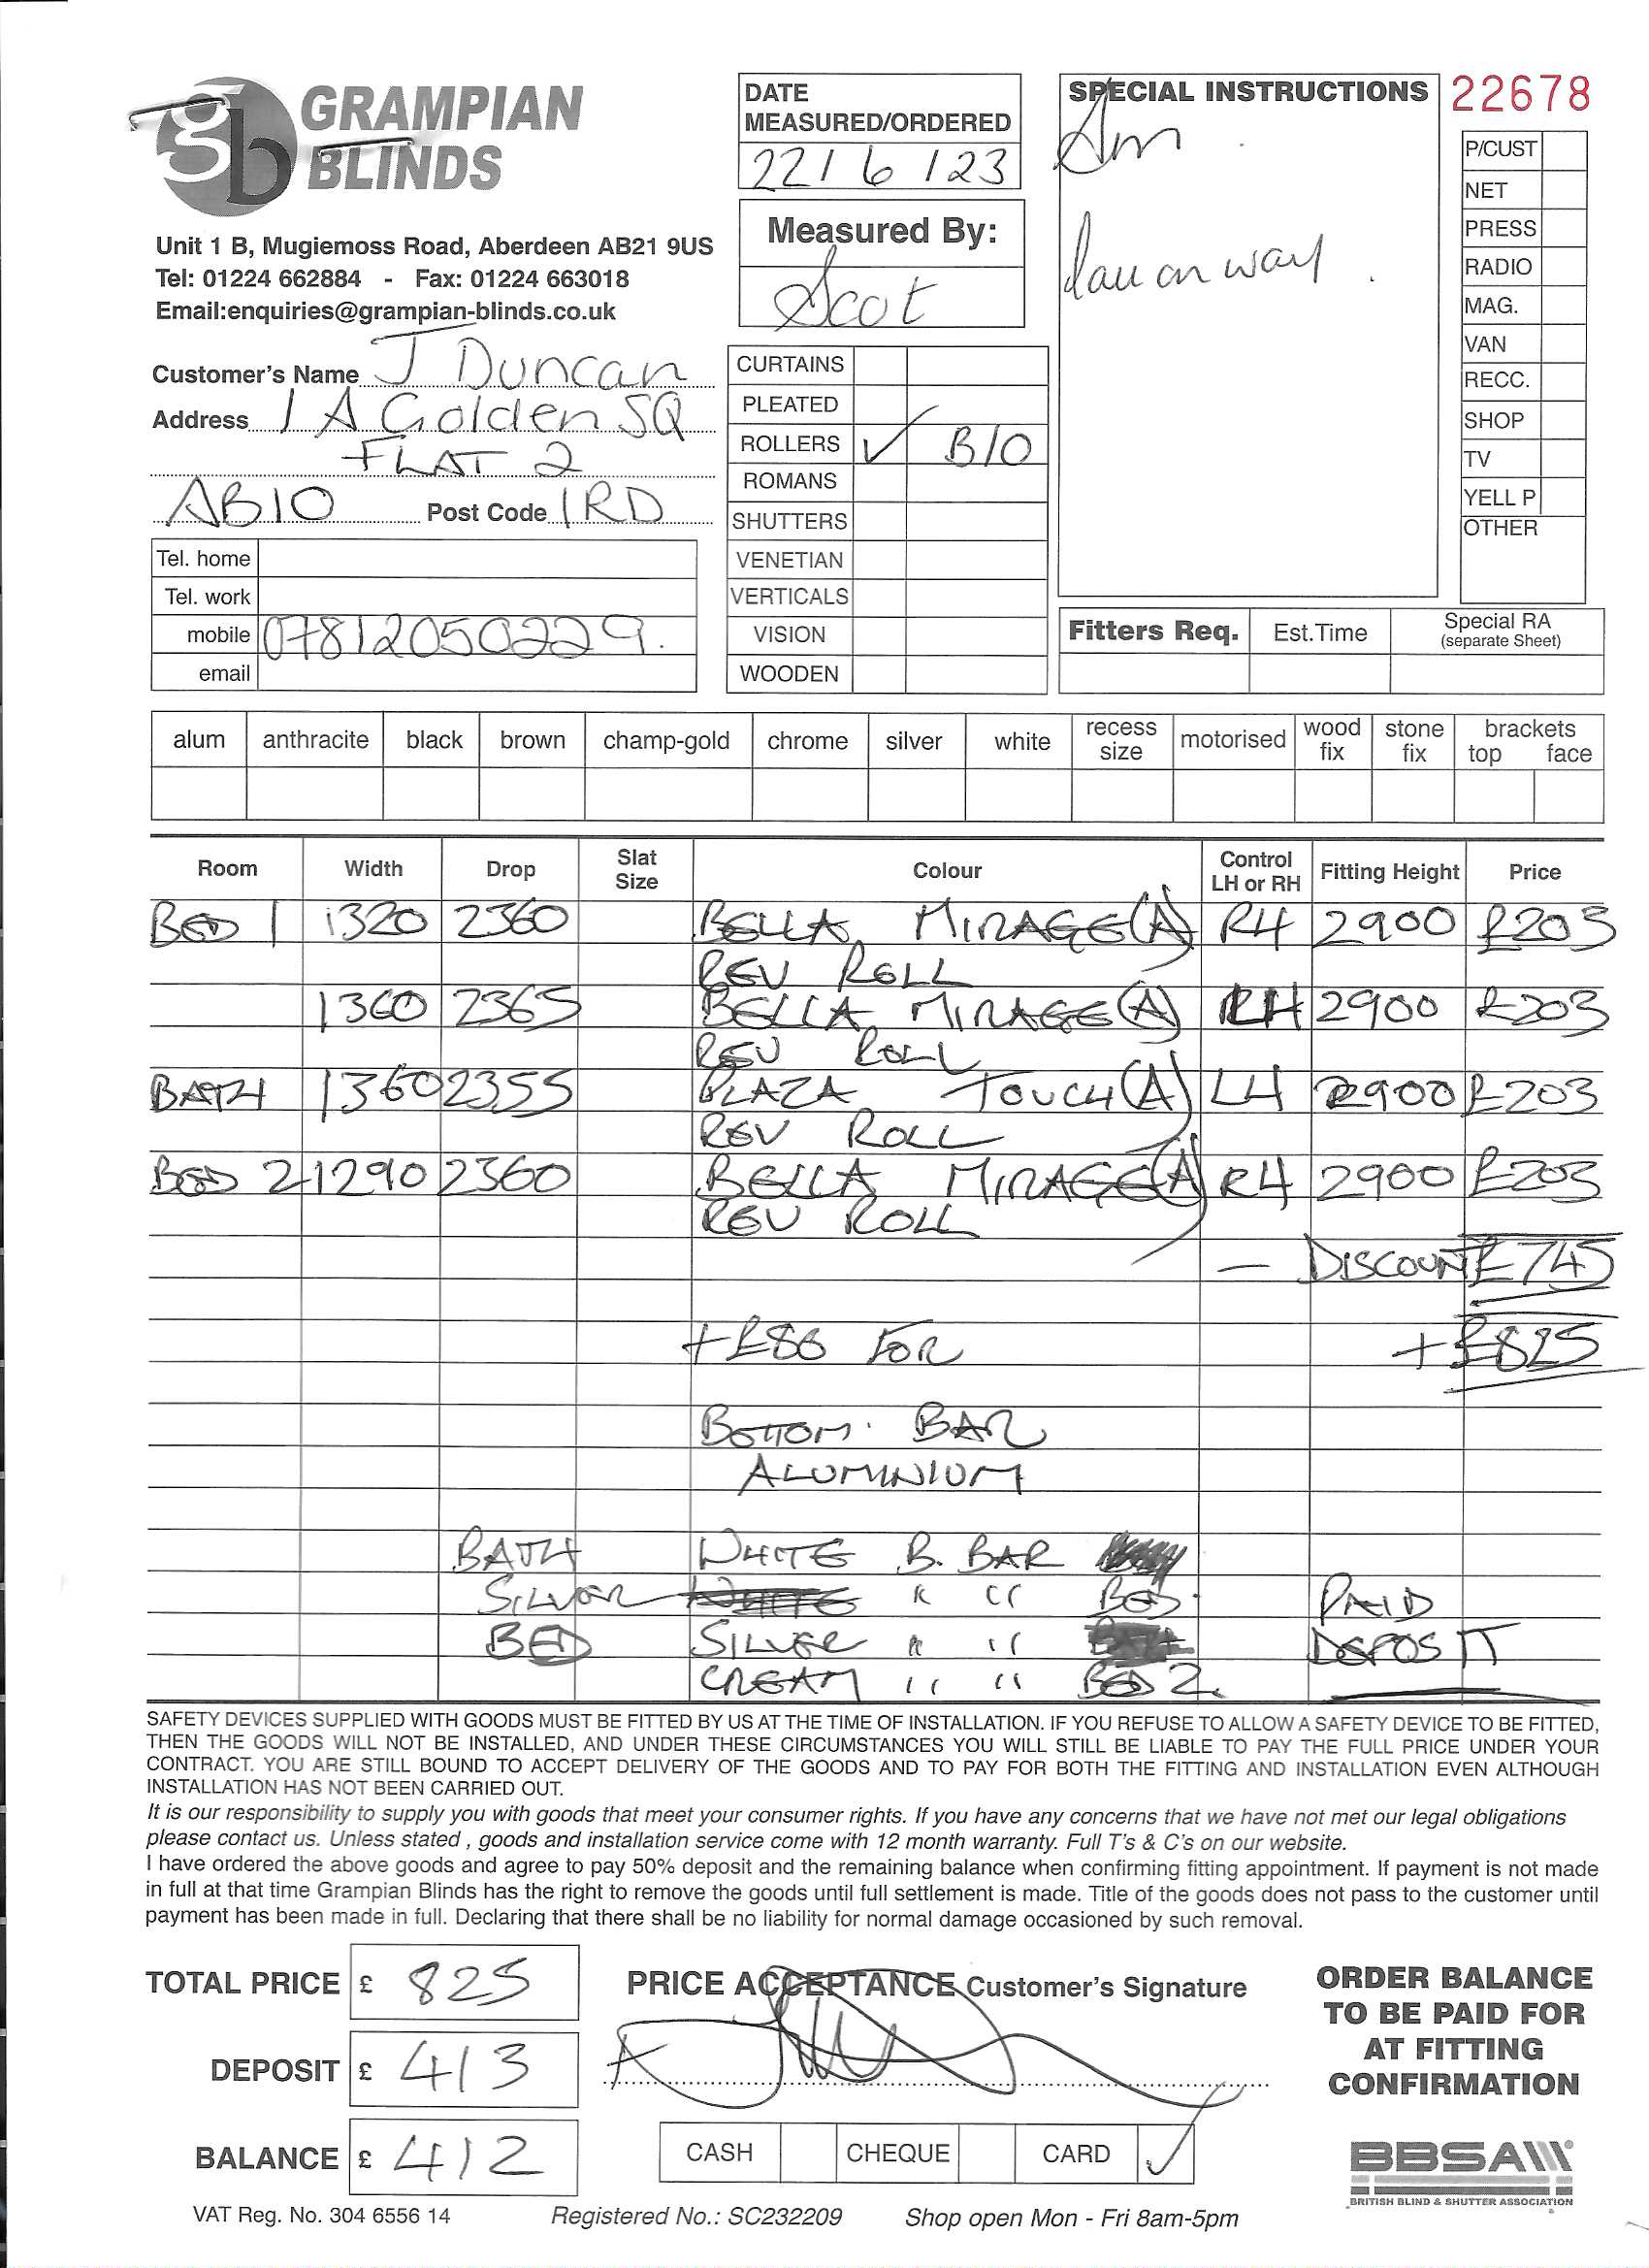 GRAMPIAN
BLINDS
gb
Unit 1 B, Mugiemoss Road, Aberdeen AB21 9US
Tel: 01224 662884 - Fax: 01224 663018
Email:enquiries@grampian-blinds.co.uk
DATE
MEASURED/ORDERED
22/6/23
Measured By:
Scot
SPECIAL INSTRUCTIONS
Am
on way
22678
P/CUST
NET
PRESS
RADIO
MAG.
VAN
RECC.
SHOP
TV
YELL P
OTHER
Customer's Name J Duncan
Address 1 A Golden SQ
FLAT 2
AB10 Post Code 1RD
Tel. home
Tel. work
mobile 07812050229.
email
CURTAINS
PLEATED
ROLLERS ✓ B/O
ROMANS
SHUTTERS
VENETIAN
VERTICALS
VISION
WOODEN
Fitters Req. Est.Time Special RA
(separate Sheet)
alum anthracite black brown champ-gold chrome silver white recess size motorised wood fix stone fix brackets top face
Room Width Drop Slat Size Colour Control LH or RH Fitting Height Price
BED 1 1320 2360 BELLA MIRAGE(A) RH 2900 £203
REV ROLL
1360 2365 BELLA MIRAGE(A) LH 2900 £203
REV ROLL
BATH 1360 2355 PLAZA TOUCH(A) LH 2900 £203
REV ROLL
BED 2 1290 2360 BELLA MIRAGE(A) RH 2900 £203
REV ROLL
— DISCOUNT £745
+£80 FOR +£825
BOTTOM BAR
ALUMINIUM
BATH WHITE B. BAR
SILVER " " BED PAID
BED SILVER " " DEPOSIT
CREAM " " BED 2.
SAFETY DEVICES SUPPLIED WITH GOODS MUST BE FITTED BY US AT THE TIME OF INSTALLATION. IF YOU REFUSE TO ALLOW A SAFETY DEVICE TO BE FITTED,
THEN THE GOODS WILL NOT BE INSTALLED, AND UNDER THESE CIRCUMSTANCES YOU WILL STILL BE LIABLE TO PAY THE FULL PRICE UNDER YOUR
CONTRACT. YOU ARE STILL BOUND TO ACCEPT DELIVERY OF THE GOODS AND TO PAY FOR BOTH THE FITTING AND INSTALLATION EVEN ALTHOUGH
INSTALLATION HAS NOT BEEN CARRIED OUT.
It is our responsibility to supply you with goods that meet your consumer rights. If you have any concerns that we have not met our legal obligations
please contact us. Unless stated , goods and installation service come with 12 month warranty. Full T's & C's on our website.
I have ordered the above goods and agree to pay 50% deposit and the remaining balance when confirming fitting appointment. If payment is not made
in full at that time Grampian Blinds has the right to remove the goods until full settlement is made. Title of the goods does not pass to the customer until
payment has been made in full. Declaring that there shall be no liability for normal damage occasioned by such removal.
TOTAL PRICE £ 825
DEPOSIT £ 413
BALANCE £ 412
PRICE ACCEPTANCE Customer's Signature
CASH CHEQUE CARD ✓
ORDER BALANCE
TO BE PAID FOR
AT FITTING
CONFIRMATION
BBSA
BRITISH BLIND & SHUTTER ASSOCIATION
VAT Reg. No. 304 6556 14 Registered No.: SC232209 Shop open Mon - Fri 8am-5pm